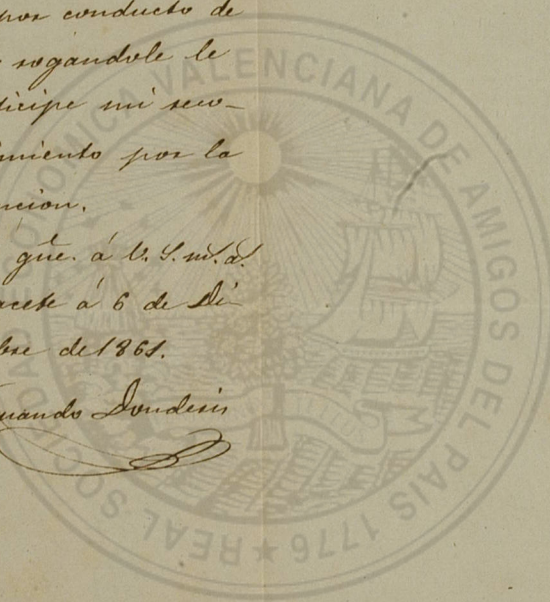 por conducto de
rogandole le
ticipe mi reco-
miento por la
ncion.
gue. á V. S. m. a.
acete á 6 de Di-
bre de 1861.
nando Donderis
REAL SOCIEDAD ECONOMICA VALENCIANA DE AMIGOS DEL PAIS 1776